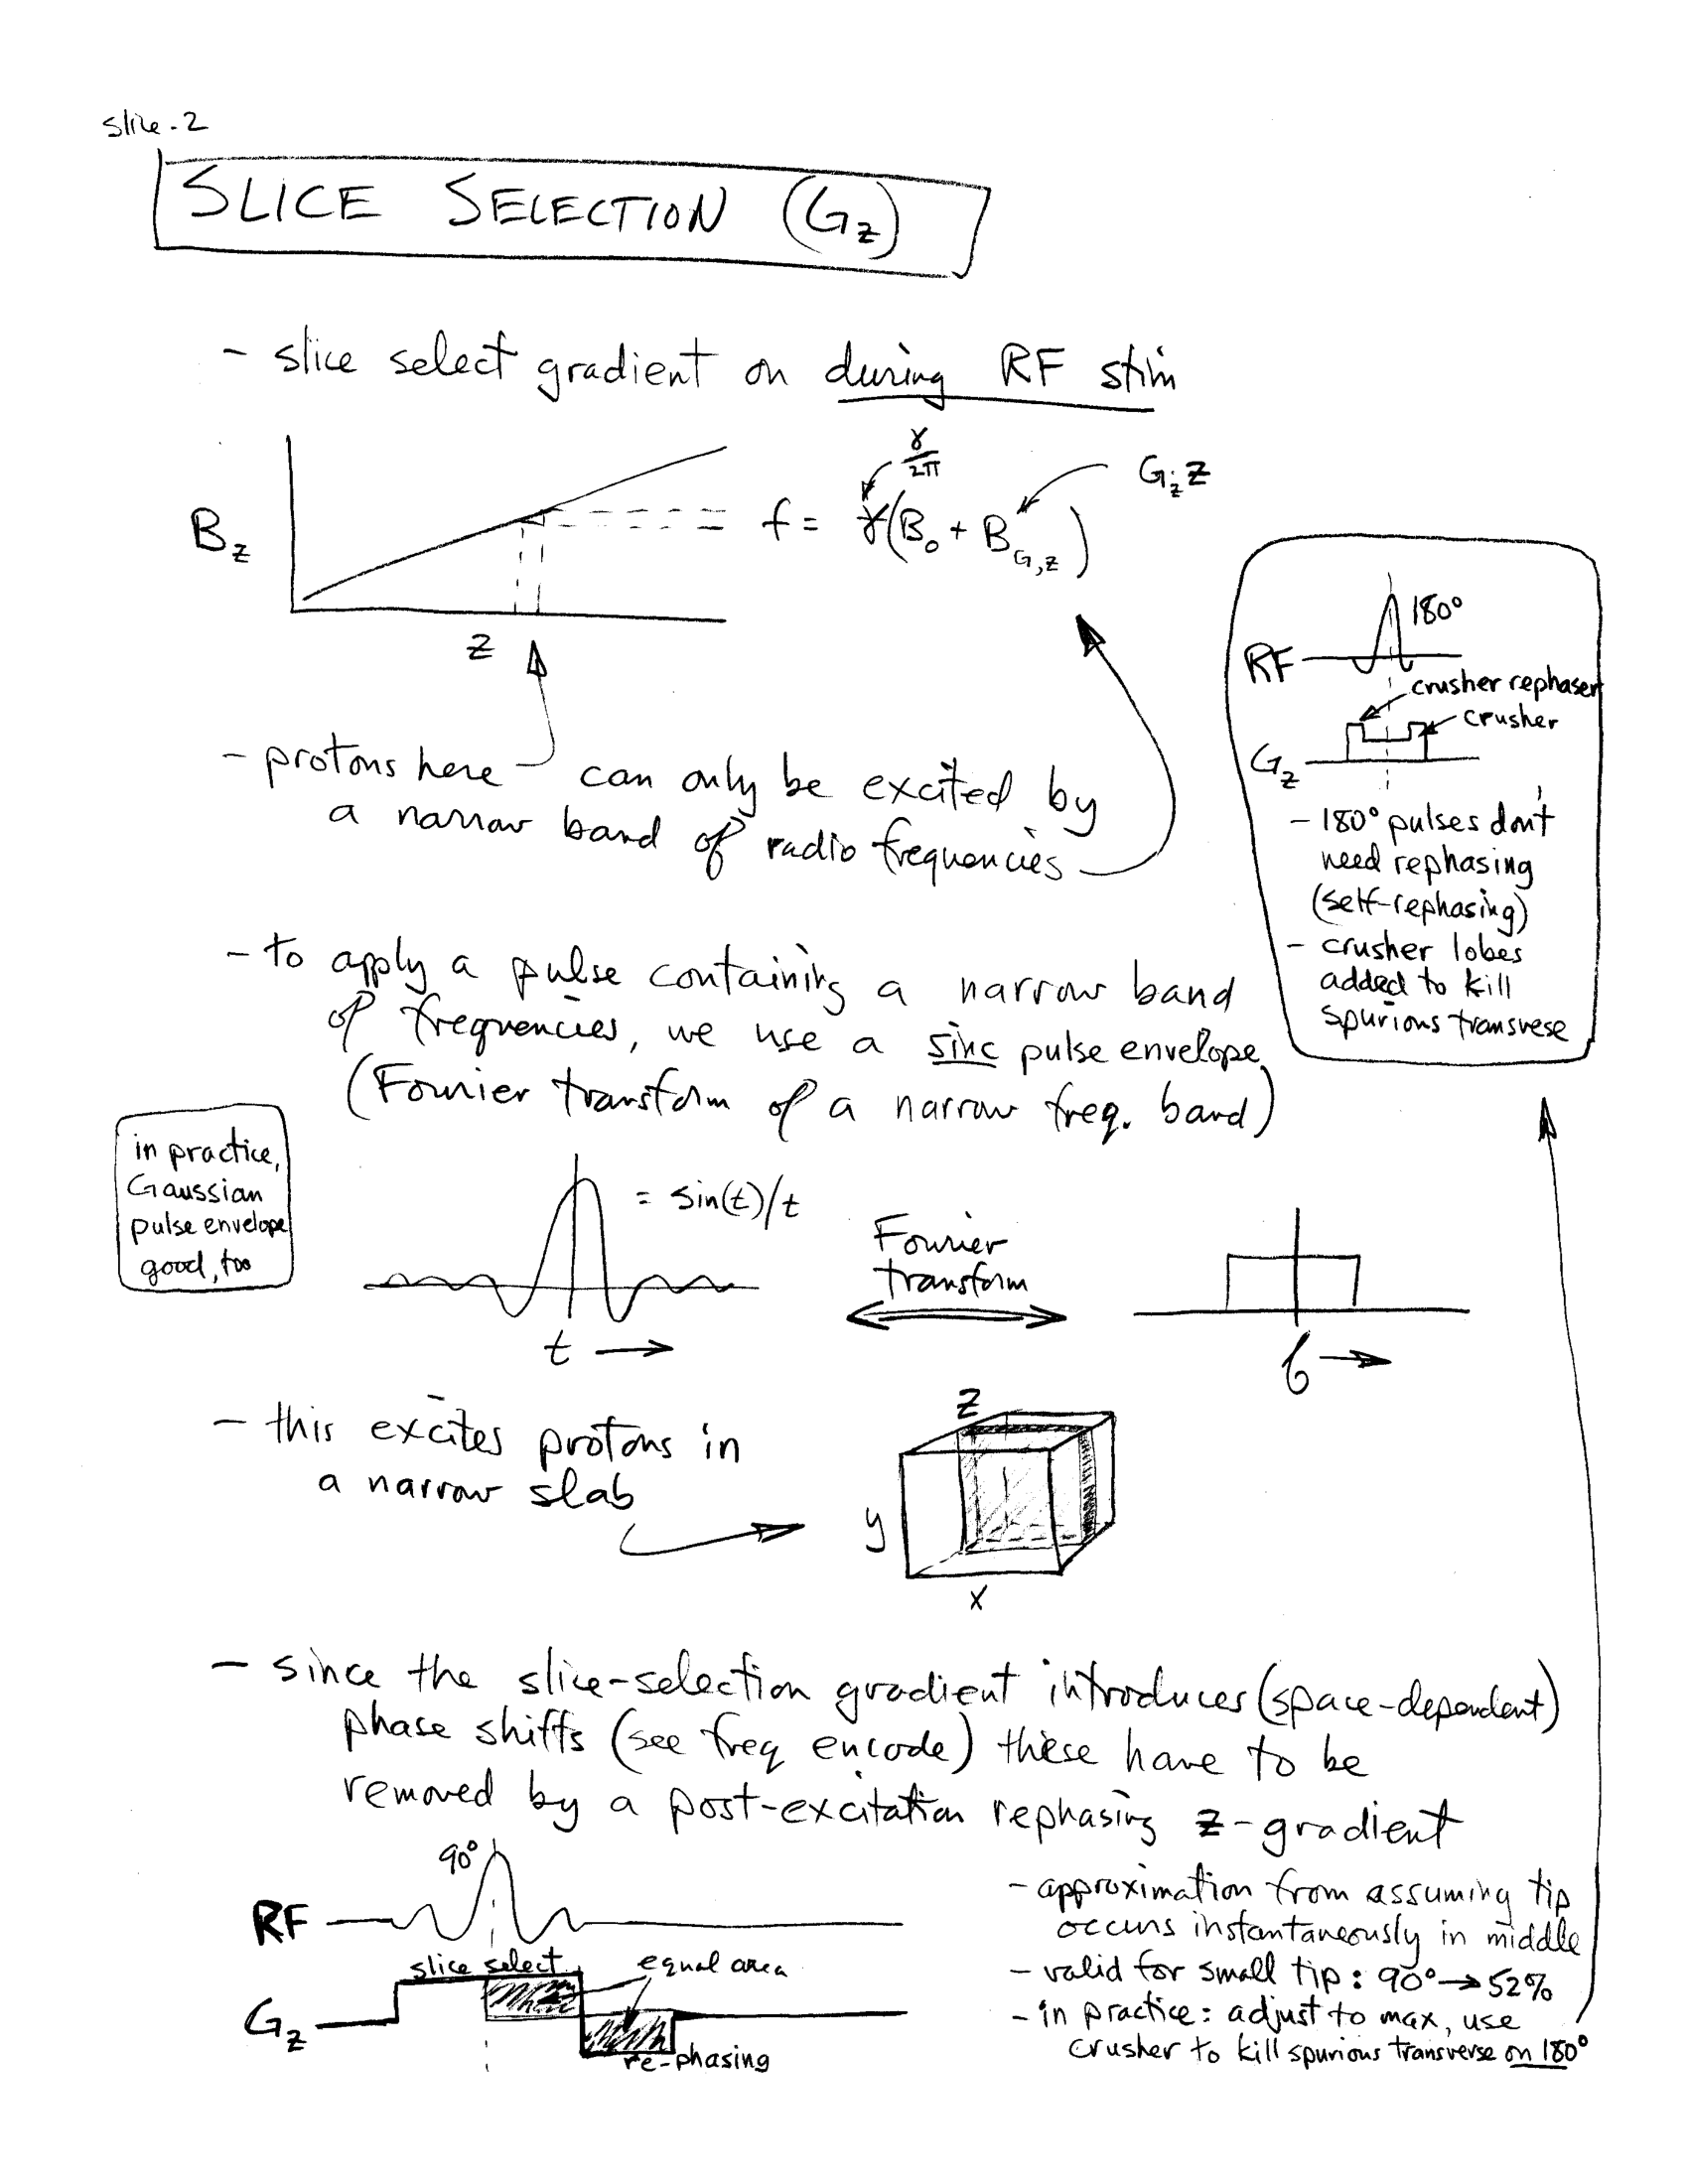 slice-2
SLICE SELECTION (Gz)
- slice select gradient on during RF stim
γ/2π
Gz z
Bz
f = γ(B0 + BG,z)
z
- protons here can only be excited by
a narrow band of radio frequencies
RF
180°
crusher rephaser
crusher
Gz
- 180° pulses don't
need rephasing
(self-rephasing)
- crusher lobes
added to kill
spurious transvese
- to apply a pulse containing a narrow band
of frequencies, we use a sinc pulse envelope
(Fourier transform of a narrow freq. band)
in practice,
Gaussian
pulse envelope
good, too
= sin(t)/t
t
Fourier
transform
f
- this excites protons in
a narrow slab
z
y
x
- since the slice-selection gradient introduces (space-dependent)
phase shifts (see freq encode) these have to be
removed by a post-excitation rephasing z-gradient
90°
RF
slice select
equal area
Gz
re-phasing
- approximation from assuming tip
occurs instantaneously in middle
- valid for small tip: 90°→52%
- in practice: adjust to max, use
crusher to kill spurious transverse on 180°